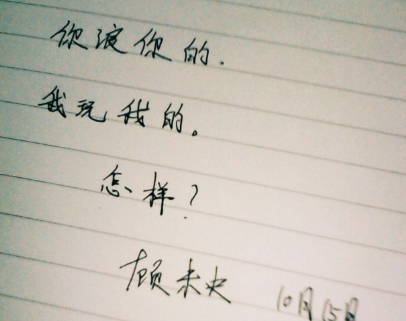 你浪你的.
我玩我的。
怎样？
顾未央 10月15日